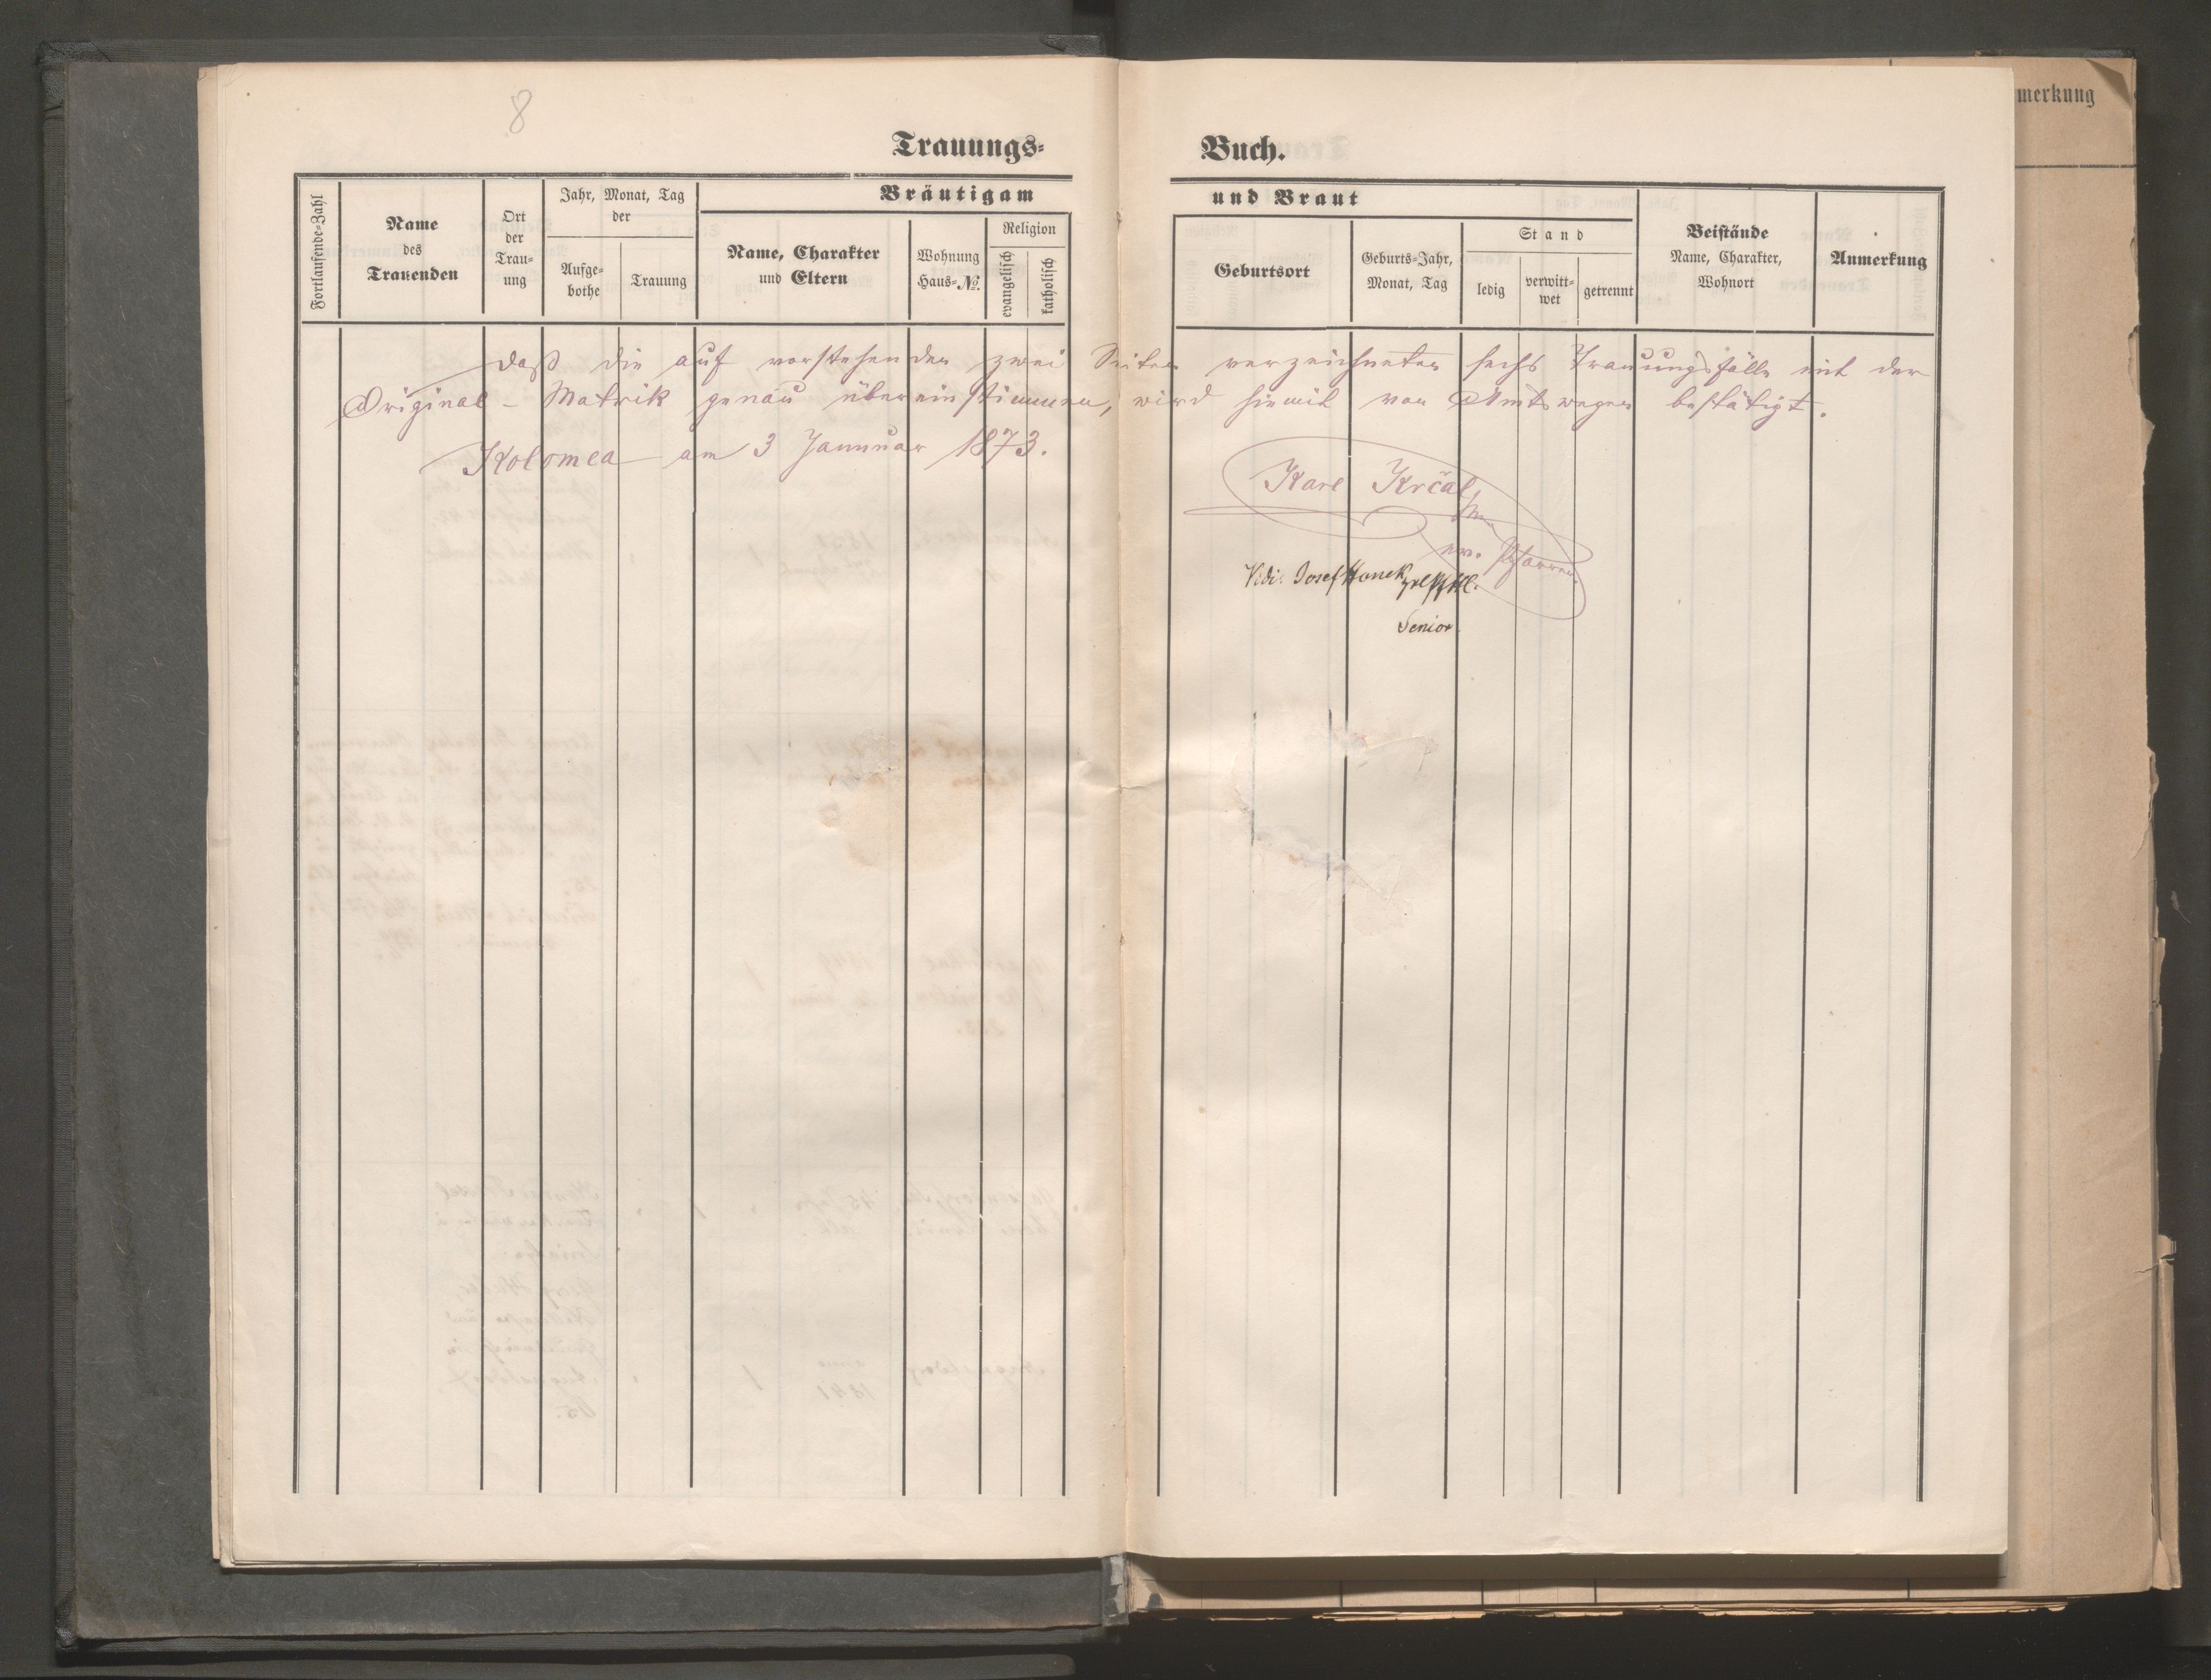 8
Trauungs= Buch.
Fortlaufende=Zahl
Name
des
Trauenden
Ort
der
Trau=
ung
Jahr, Monat, Tag
der
Aufge=
bothe
Trauung
Bräutigam und Braut
Name, Charakter
und Eltern
Wohnung
Haus=No.
Religion
evangelisch
katholisch
Geburtsort
Geburts=Jahr,
Monat, Tag
Stand
ledig
verwitt=
wet
getrennt
Beistände
Name, Charakter,
Wohnort
Anmerkung
merkung
Daß die auf vorstehenden zwei Seiten verzeichneten sechs Trauungsfälle mit der
Original - Matrik genau übereinstimmen, wird hiemit von Amtswegen bestätigt.
Kolomea am 3 Jannuar 1873.
Karl Krčal,
ev. Pfarrer.
Vidi: Josef Honek
Senior.